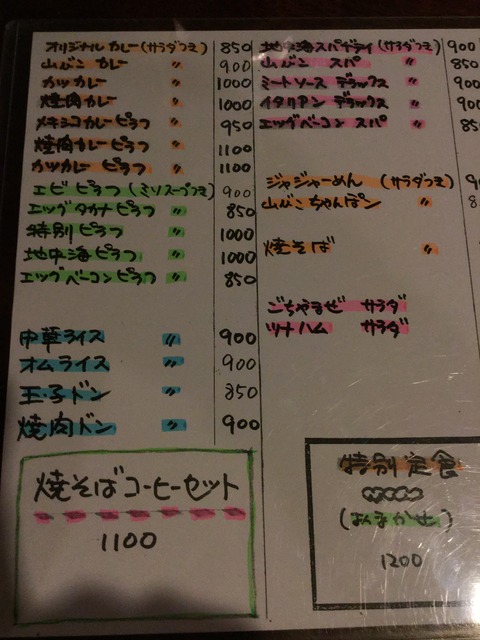 オリジナルカレー(サラダつき) 850
山びこ カレー 〃 900
カツカレー 〃 1000
焼肉カレー 〃 1000
メキシコカレーピラフ 〃 950
焼肉カレーピラフ 〃 1100
カツカレーピラフ 〃 1100
エビピラフ(ミソスープつき) 900
エッグタカナピラフ 〃 850
特別ピラフ 〃 1000
地中海ピラフ 〃 1000
エッグベーコンピラフ 〃 850
中華ライス 〃 900
オムライス 〃 900
玉子ドン 〃 850
焼肉ドン 〃 900
焼そばコーヒーセット
1100
地中海スパゲティ(サラダつき) 900
山びこ スパ 〃 850
ミートソース デラックス 〃 900
イタリアン デラックス 〃 900
エッグベーコン スパ 〃
ジャジャーめん (サラダつき)
山びこちゃんぽん 〃
焼そば 〃
ごちゃまぜ サラダ
ツナハム サラダ
特別定食
(おまかせ)
1200